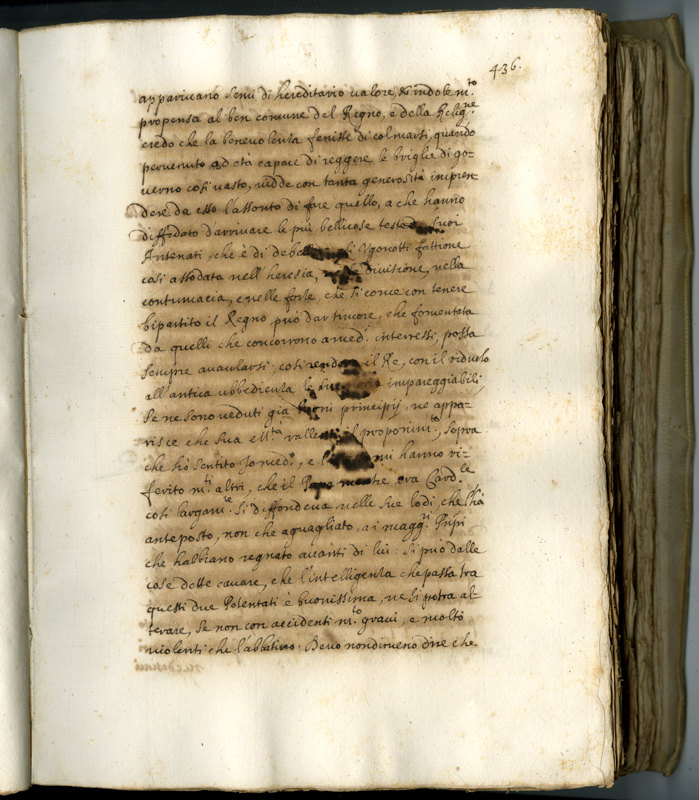 436.
apparivano semi di hereditario valore, d'indole m.to
propensa al ben comune del Regno, e della Relig.ne
credo che la benevolenza fenisse di colmarsi, quando
pervenuto ad età capace di reggere le briglie di go=
verno così vasto, vidde con tanta generosità impren
dere da esso l'assonto di fare quello, a che hanno
diffidato d'arrivare le più bellicose teste suoi
Antenati, che è di Vgonotti fattione
così assodata nell'heresia, divisione, nella
contumacia, e nelle forze, che si come con tenere
bipartito il Regno può dar timore, che fomentata
da quelli che concorrono a med.i interessi, possa
sempre avanzarsi, così rendere il Re, con il ridurlo
all'antica ubbedienza le sue impareggiabili
Se ne sono veduti già buoni principij, ne appa=
risce che Sua M.tà il proponim.to, sopra
che hò sentito Io med.o, e mi hanno ri=
ferito m.ti altri, che il Papa mentre era Card.le
così largam.te si diffondeva nelle sue lodi, che l'hà
anteposto, non che aguagliato, a i magg.ri Prĩpi
che habbiano regnato avanti di lui. Si può dalle
cose dette cavare, che l'intelligenza che passa tra
questi due Potentati è buonissima, ne si potrà al=
terare, se non con accidenti m.to gravi, e molto
violenti che l'abbattino. Devo nondimeno dire che